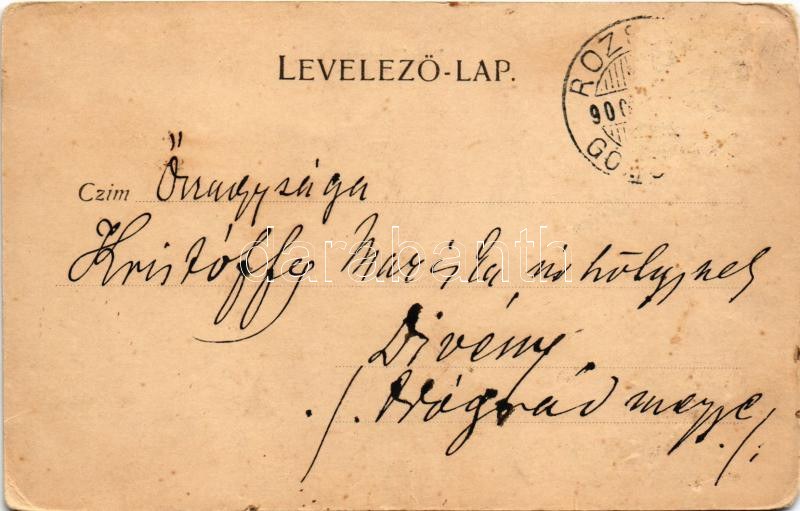 LEVELEZŐ-LAP.
ROZS
900
GÖ
Czim Őnagysága
Kristóffy Mariska úrhölgynek
Divény
/. Nógrád megye ./.
darabanth